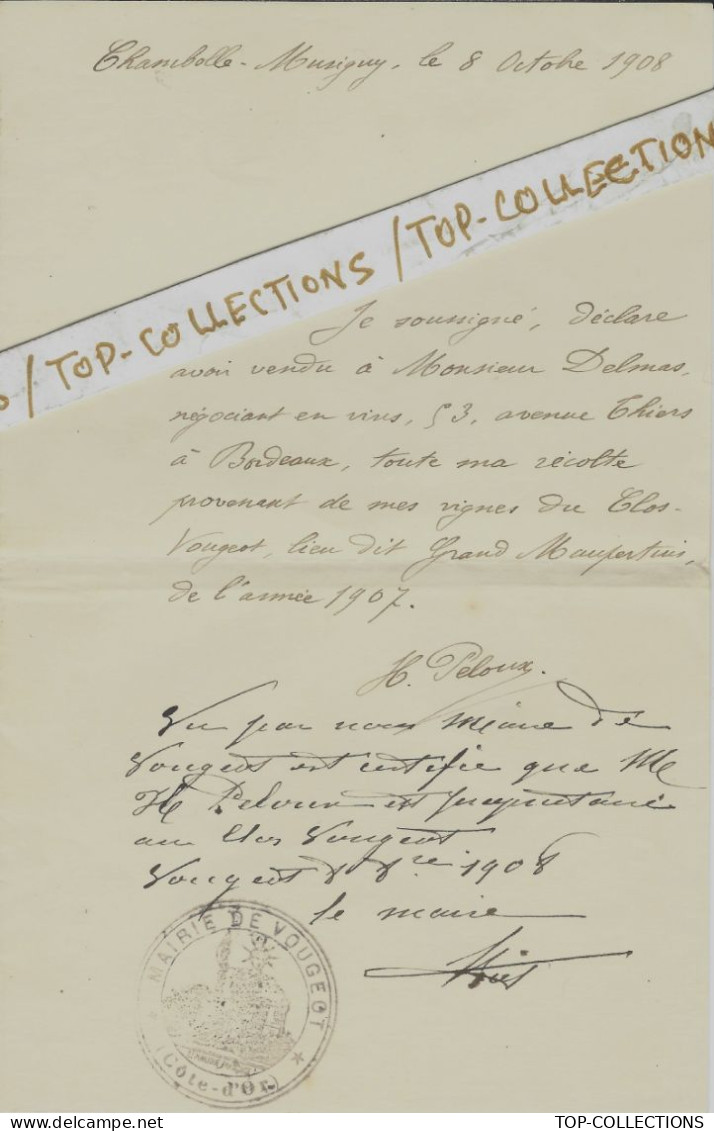 Chambolle-Musigny, le 8 Octobre 1908
/TOP-COLLECTIONS /TOP-COLLECTION
Je soussigné, déclare
avoir vendu à Monsieur Delmas,
négociant en vins, 53, avenue Thiers
à Bordeaux, toute ma récolte
provenant de mes vignes du Clos-
Vougeot, lieu dit Grand Maupertuis,
de l'année 1907.
H. Peloux.
Vu par nous Maire de
Vougeot et certifie que M
H Peloux est propriétaire
au Clos Vougeot
Vougeot 8 8re 1908
le maire
MAIRIE DE VOUGEOT
(Côte-d'Or)
TOP-COLLECTIONS